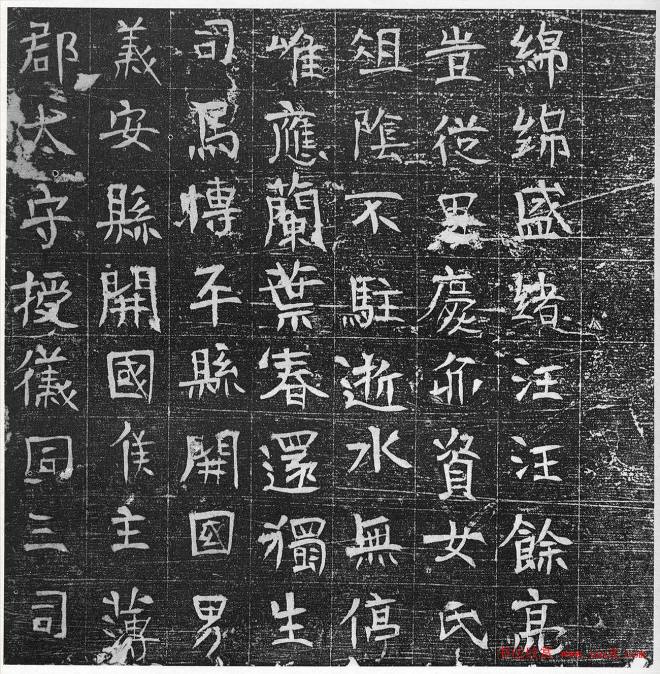 綿綿盛緒汪汪餘亮
豈從男慶亦資女氏
俎陰不駐逝水無停
唯應蘭葉春還獨生
司馬愽平縣開國男
義安縣開國侯主薄
郡太守授儀同三司